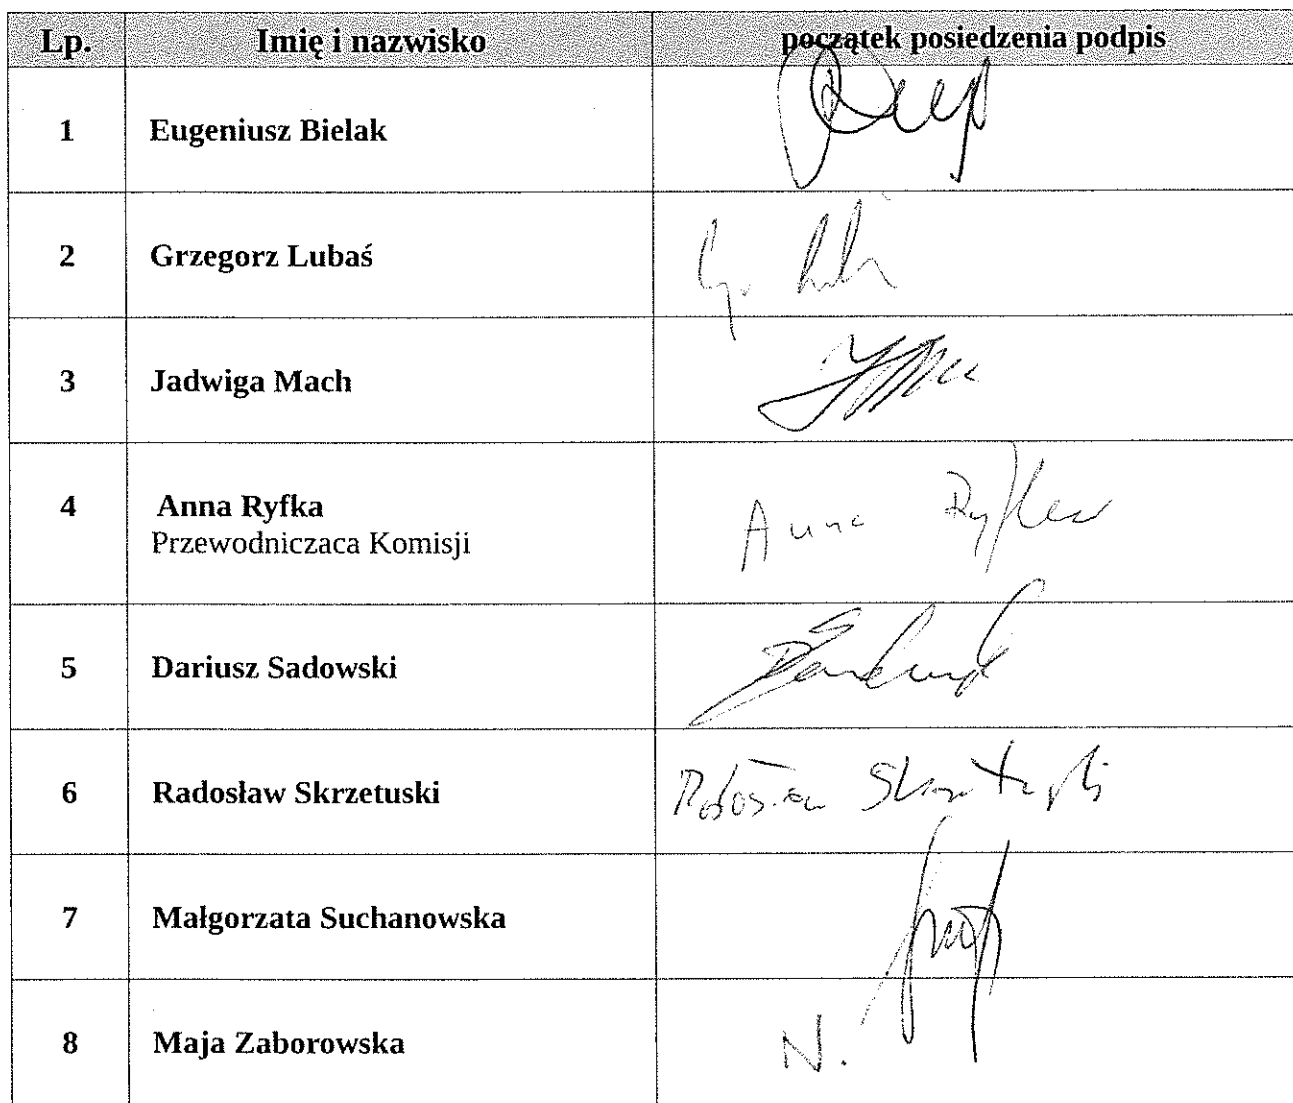 Lp. Imię i nazwisko początek posiedzenia podpis
1 Eugeniusz Bielak
2 Grzegorz Lubaś
3 Jadwiga Mach
4 Anna Ryfka Anna Ryfka
Przewodniczaca Komisji
5 Dariusz Sadowski
6 Radosław Skrzetuski
7 Małgorzata Suchanowska
8 Maja Zaborowska N.